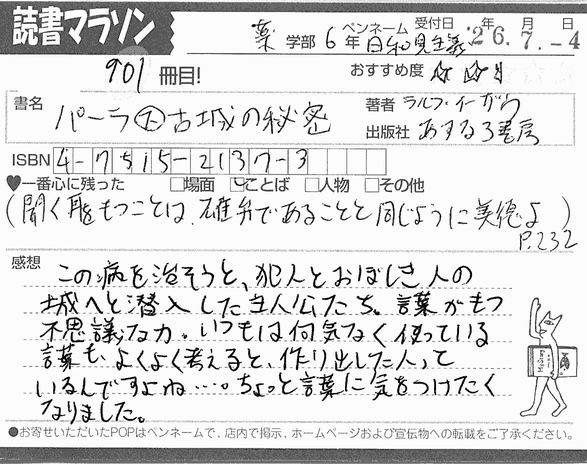 読書マラソン
薬 学部 6 年 ペンネーム 日和見主義 受付日 '26.年7.月-4日
901 冊目! おすすめ度 ☆☆
書名 パーラ 古城の秘密 著者 ラルフ・イーザウ
出版社 あすなろ書房
ISBN 4-7515-2137-3
♥一番心に残った □場面 ☑ことば □人物 □その他
(聞く耳をもつことは、雄弁であることと同じように美徳よ)
P.232
感想
この病を治そうと、犯人とおぼしき人の
城へと潜入した主人公たち。言葉がもつ
不思議な力。いつもは何気なく使っている
言葉も、よくよく考えると、作り出した人って
いるんですよね……。ちょっと言葉に気をつけたく
なりました。
●お寄せいただいたPOPはペンネームで、店内で掲示、ホームページおよび宣伝物への転載をご了承ください。